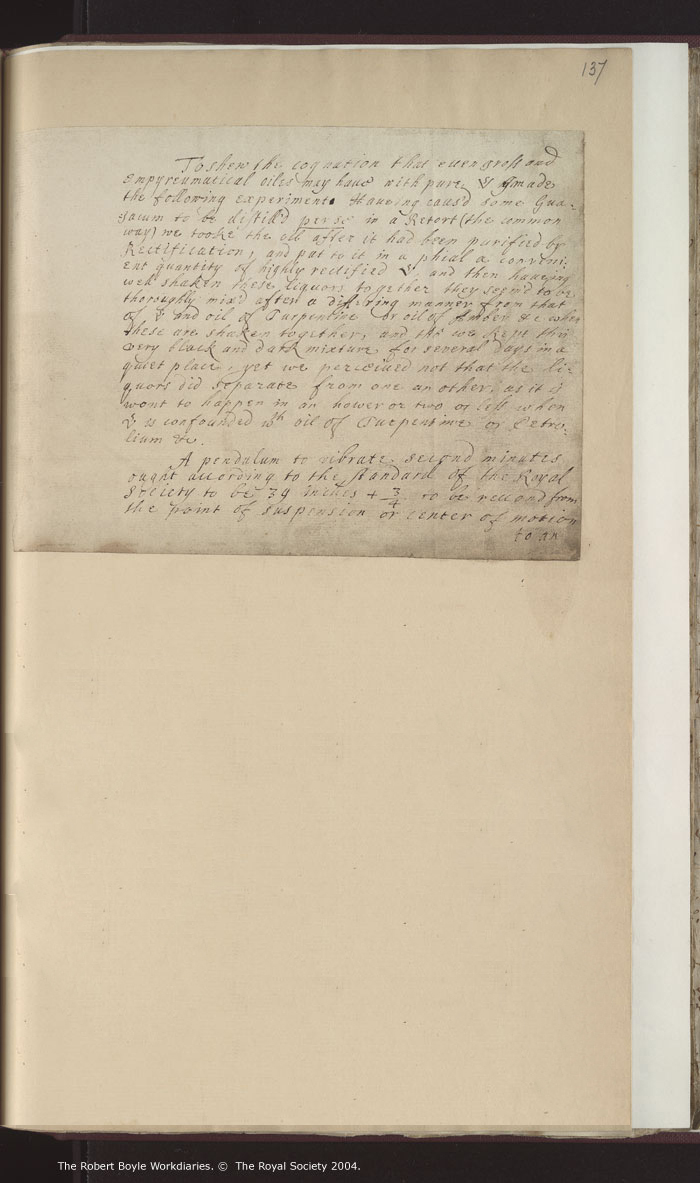 137
To shew the cognation that even gross and
Empyreumatical oiles may have with pure made
the following experiment. Haveing caus'd some Gua-
jacum to be distill'd per se in a Retort (the common
way) we tooke the oil after it had been purified by
Rectification, and put to it in a phial a conveni-
ent quantity of highly rectified and then haveing
well shaken these liquors together they seem'd to be
thoroughly mix'd after a differing manner from that
of and oil of Turpentine or oil of Amber &c when
these are shaken together, and tho we kept this
very black and dark mixture, for several days in a
quiet place, yet we perceived not that the li-
quors did separate from one an other, as it is
wont to happen in an hower or two or less when
is confounded wth oil of Turpentine or Petro-
lium &c.
A pendulum to vibrate second minutes
ought according to the standard of the Royal
Society to be 39 inches + 3/4 to be reccond from
the point of suspension or center of motion
to an
The Robert Boyle Workdiaries. © The Royal Society 2004.